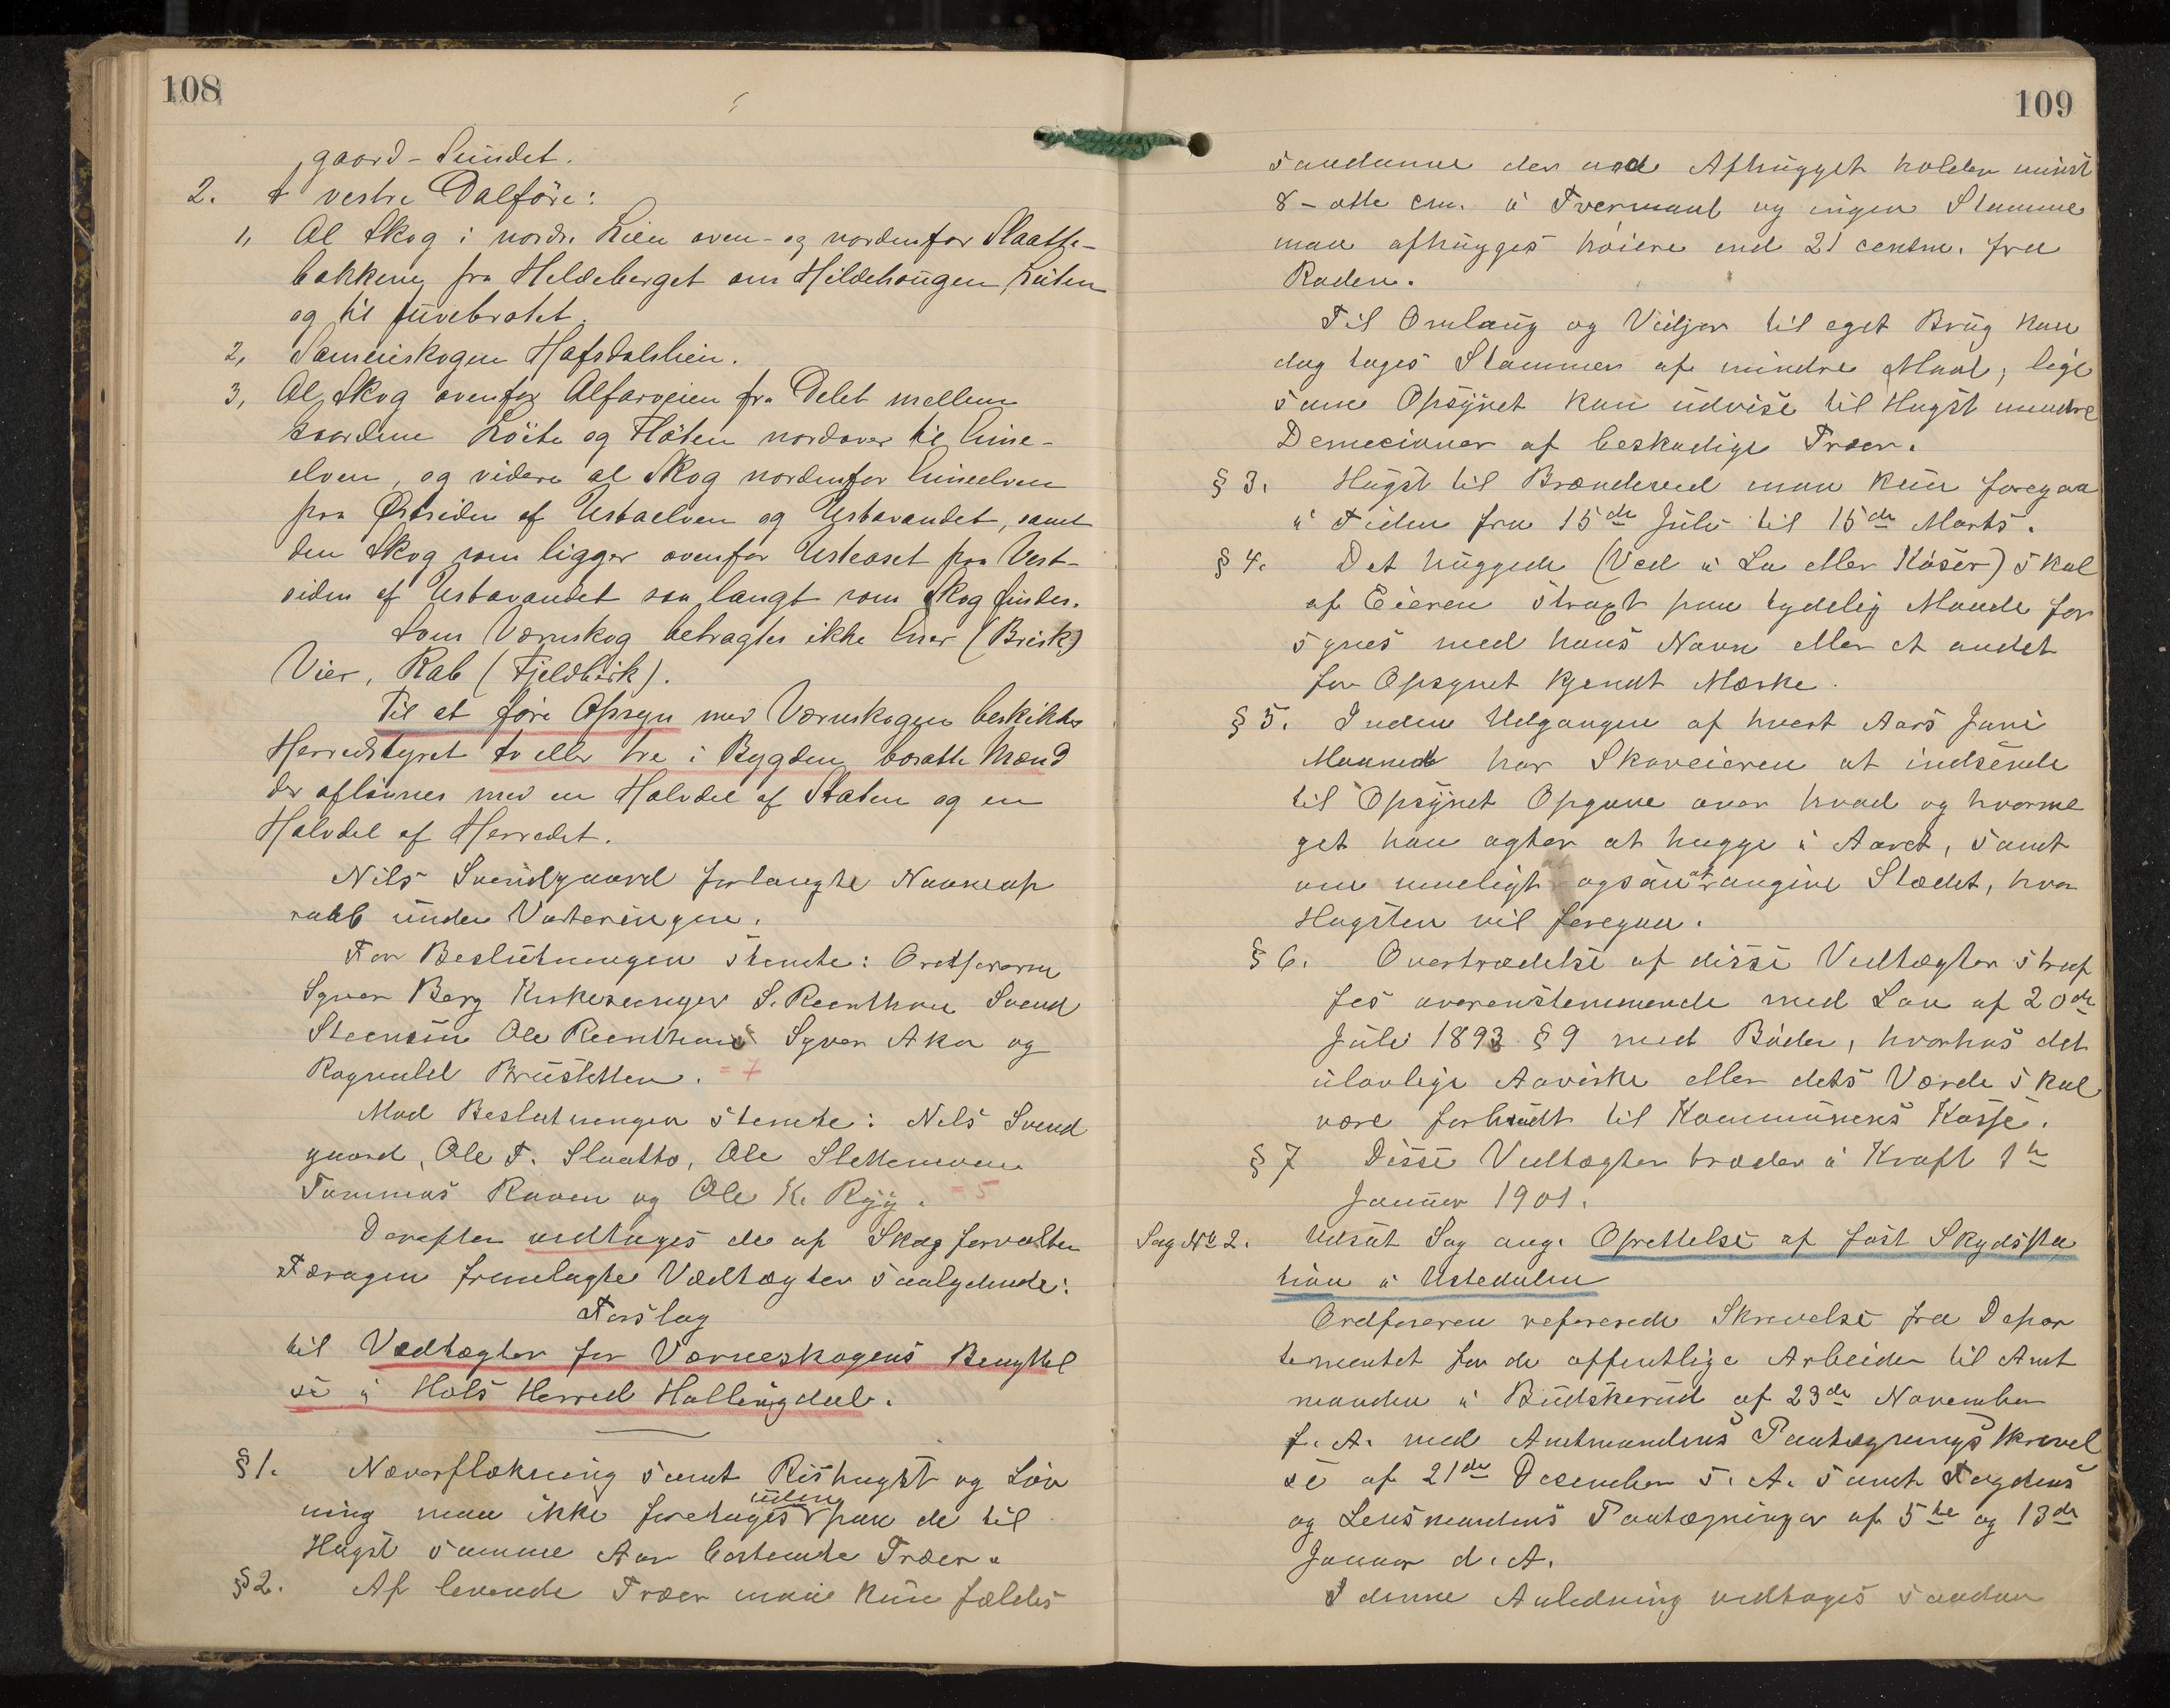 108
gaard-Sundet.
2. I vestre Dalföre:
1, Al Skog i nordre Lien oven- og nordenfor Slaatte-
bakkene fra Hildeberget om Hildehaugen, Luten
og til Juvebrotet.
2, Sameieskogen Hafsdalslien.
3, Al Skog ovenfor Alfarveien fra Delet mellem
Gaardene Löite og Flöten nordover til
elven, og videre al Skog nordenfor
paa Östsiden af Ustaelven og Ustavandet, samt
den Skog som ligger ovenfor Usteoset paa Vest-
siden af Ustavandet saa langt som Skog findes.
Som Værnskog betragtes ikke Einer (Brisk)
Vier, Rab (Fjeldbirk).
Til at före Opsyn med Værnskogen beskikker
Herredstyret to eller tre i Bygden bosatte Mænd
der aflönnes med en Halvdel af Staten og en
Halvdel af Herredet.
Nils Svendgaard forlangte Navneop
raab under Voteringen.
For Beslutningen stemte: Ordföreren
Syver Berg Kirkesanger S. Reinthon Svend
Steensen Ole Reinthon Syver Aker og
Ragnvald Brusletten. = 7
Mod Beslutningen stemte: Nils Svend
gaard, Ole T. Slaatto, Ole Slettemoen
Tommas Raaen og Ole K. Ryg. = 5
Derefter vedtages de af Skogforvalter
Færagen fremlagte Vedtægter saalydende:
Forslag
til Vedtægter for Værneskogens Benyttel
se i Hols Herred Hallingdal.
§1. Næverflækning samt Rishugst og Löv
ning maa ikke foretages uden paa de til
Hugst samme Aar bestemte Træer.
§2. Af levende Træer maa kun fældes
109
saadanne der ved Afhugget holder minst
8 - otte cm. i Tvermaal og ingen Stamme
maa afhugges höiere end 21 centm. fra
Roden.
Til Omlaug og Vidjer til eget Brug kan
dog tages Stammer af mindre Maal, lige
som Opsynet kan udvise til Hugst mindre
Demecioner af beskadige Træer.
§ 3. Hugst til Brændeved maa kun foregaa
i Tiden fra 15de Juli til 15de Marts.
§ 4. Det huggede (Ved i La eller Köser) skal
af Eieren stragt paa tydelig Maade for
synes med hans Navn eller et andet
for Opsynet kjendt Mærke.
§ 5. Inden Udgangen af hvert Aars Juni
Maaned har Skoveieren at indsende
til Opsynet Opgave over hvad og hvorme
get han agter at hugge i Aaret, samt
om mueligt ogsaa at angive Stedet, hvor
Hugsten vil foregaa.
§ 6. Overtrædelse af disse Vedtægter straf
fes overenstemmende med Lov af 20de
Juli 1893 § 9 med Böder, hvorhos det
ulovlige Aavirke eller dets Værde skal
være forbrudt til Kommunens Kasse.
§ 7 Disse Vedtægter træder i Kraft 1te
Januar 1901.
Sag No 2. Udsat Sag ang. Oprettelse af fast Skydssta
tion i Ustedalen
Ordföreren refererede Skrivelse fra Depar
tementet for de offentlige Arbeider til Amt
manden i Budskerud af 23de November
f. A. med Amtmandens Paategningsskrivel
se af 21de Desember s. A. samt Fogdens
og Lensmandens Paategninger af 5te og 13de
Januar d. A.
I denne Anledning vedtages saadan